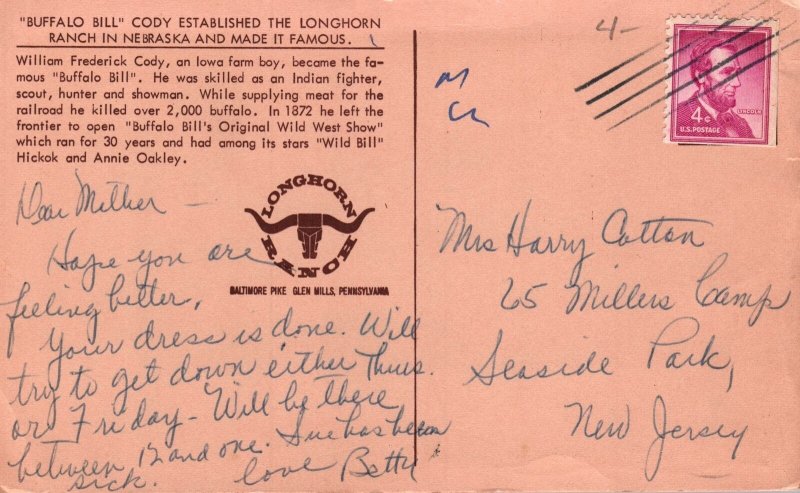 "BUFFALO BILL" CODY ESTABLISHED THE LONGHORN
RANCH IN NEBRASKA AND MADE IT FAMOUS.
William Frederick Cody, an Iowa farm boy, became the fa-
mous "Buffalo Bill". He was skilled as an Indian fighter,
scout, hunter and showman. While supplying meat for the
railroad he killed over 2,000 buffalo. In 1872 he left the
frontier to open "Buffalo Bill's Original Wild West Show"
which ran for 30 years and had among its stars "Wild Bill"
Hickok and Annie Oakley.
LONGHORN
RANCH
BALTIMORE PIKE GLEN MILLS, PENNSYLVANIA
Dear Mother —
Hope you are
feeling better,
Your dress is done. Will
try to get down either Thurs.
or Friday - Will be there
between 12 and one. Sue has been
sick. love Betty
4-
4¢
LINCOLN
U.S. POSTAGE
Mrs Harry Cotton
65 Millers Camp
Seaside Park,
New Jersey